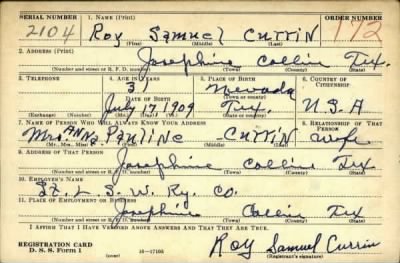 SERIAL NUMBER 1. NAME (Print) ORDER NUMBER
2104 Roy Samuel Currin 172
(First) (Middle) (Last)
2. ADDRESS (Print)
Josephine Collin Tex.
(Number and street or R. F. D. number) (Town) (County) (State)
3. TELEPHONE 4. AGE IN YEARS 5. PLACE OF BIRTH 6. COUNTRY OF CITIZENSHIP
31 Nevada
DATE OF BIRTH (Town or county)
July 17 1909 Tex. U.S.A
(Exchange) (Number) (Mo.) (Day) (Yr.) (State or country)
7. NAME OF PERSON WHO WILL ALWAYS KNOW YOUR ADDRESS 8. RELATIONSHIP OF THAT PERSON
Mrs. Anna Pauline Currin wife
(Mr., Mrs., Miss) (First) (Middle) (Last)
9. ADDRESS OF THAT PERSON
Josephine Collin Tex
(Number and street or R. F. D. number) (Town) (County) (State)
10. EMPLOYER'S NAME
St. L S. W. Ry. Co.
11. PLACE OF EMPLOYMENT OR BUSINESS
Josephine Collin Tex
(Number and street or R. F. D. number) (Town) (County) (State)
I AFFIRM THAT I HAVE VERIFIED ABOVE ANSWERS AND THAT THEY ARE TRUE.
REGISTRATION CARD
D. S. S. Form 1 16-17105 Roy Samuel Currin
(Registrant's signature)